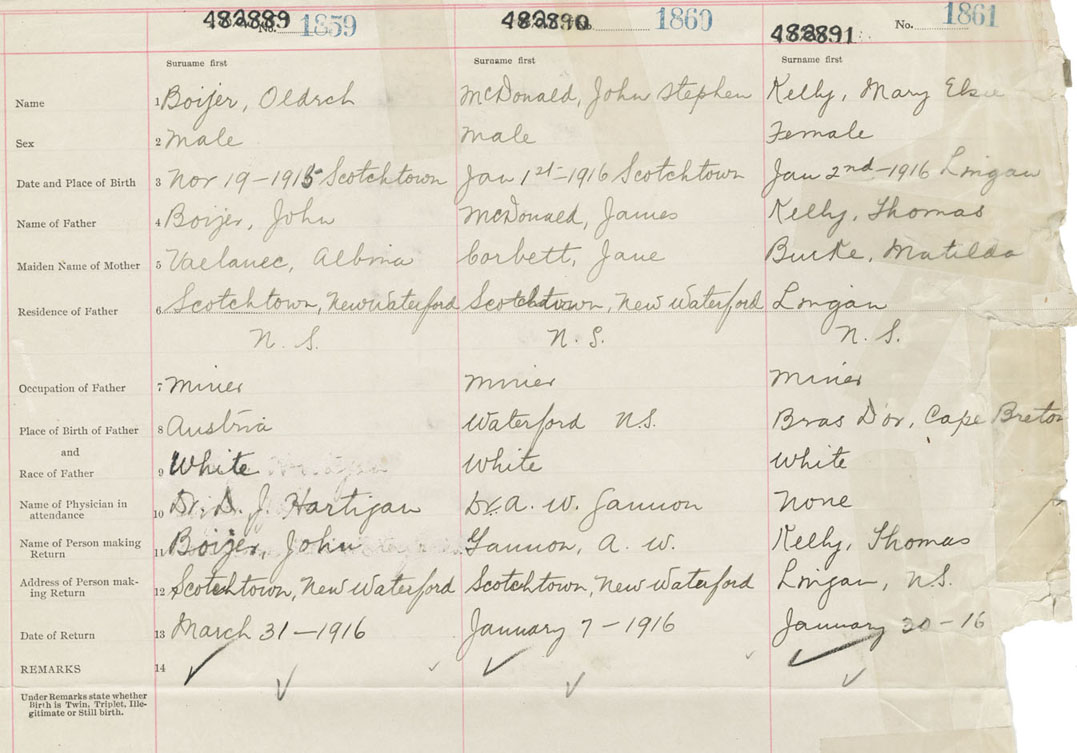 482889 No. 1859 482890 No. 1860 482891 No. 1861
Surname first Surname first Surname first
Name 1 Boijer, Oldrch McDonald, John Stephen Kelly, Mary Elsie
Sex 2 Male Male Female
Date and Place of Birth 3 Nov 19-1915 Scotchtown Jan 1st-1916 Scotchtown Jan 2nd-1916 Lingan
Name of Father 4 Boijer, John McDonald, James Kelly, Thomas
Maiden Name of Mother 5 Vaclavec, Albina Corbett, Jane Burke, Matilda
Residence of Father 6 Scotchtown, New Waterford Scotchtown, New Waterford Lingan
N. S. N. S. N. S.
Occupation of Father 7 Miner Miner Miner
Place of Birth of Father 8 Austria Waterford N.S. Bras D'or, Cape Breton
and
Race of Father 9 White White White
Name of Physician in
attendance 10 Dr. D. J. Hartigan Dr. A. W. Gannon None
Name of Person making
Return 11 Boijer, John Gannon, A. W. Kelly, Thomas
Address of Person mak-
ing Return 12 Scotchtown, New Waterford Scotchtown, New Waterford Lingan, N.S.
Date of Return 13 March 31-1916 January 7-1916 January 20-16
REMARKS 14
Under Remarks state whether
Birth is Twin, Triplet, Ille-
gitimate or Still birth.